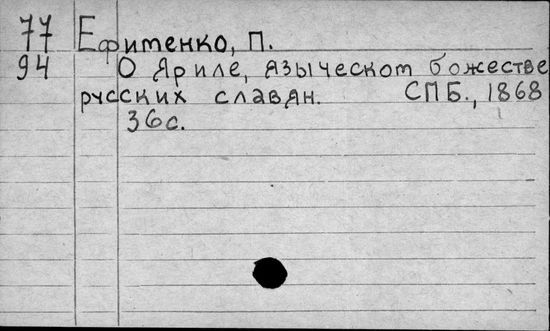 77 Ефименко, П.
94 О Яриле, языческом божестве
русских славян. СПБ., 1868
36с.